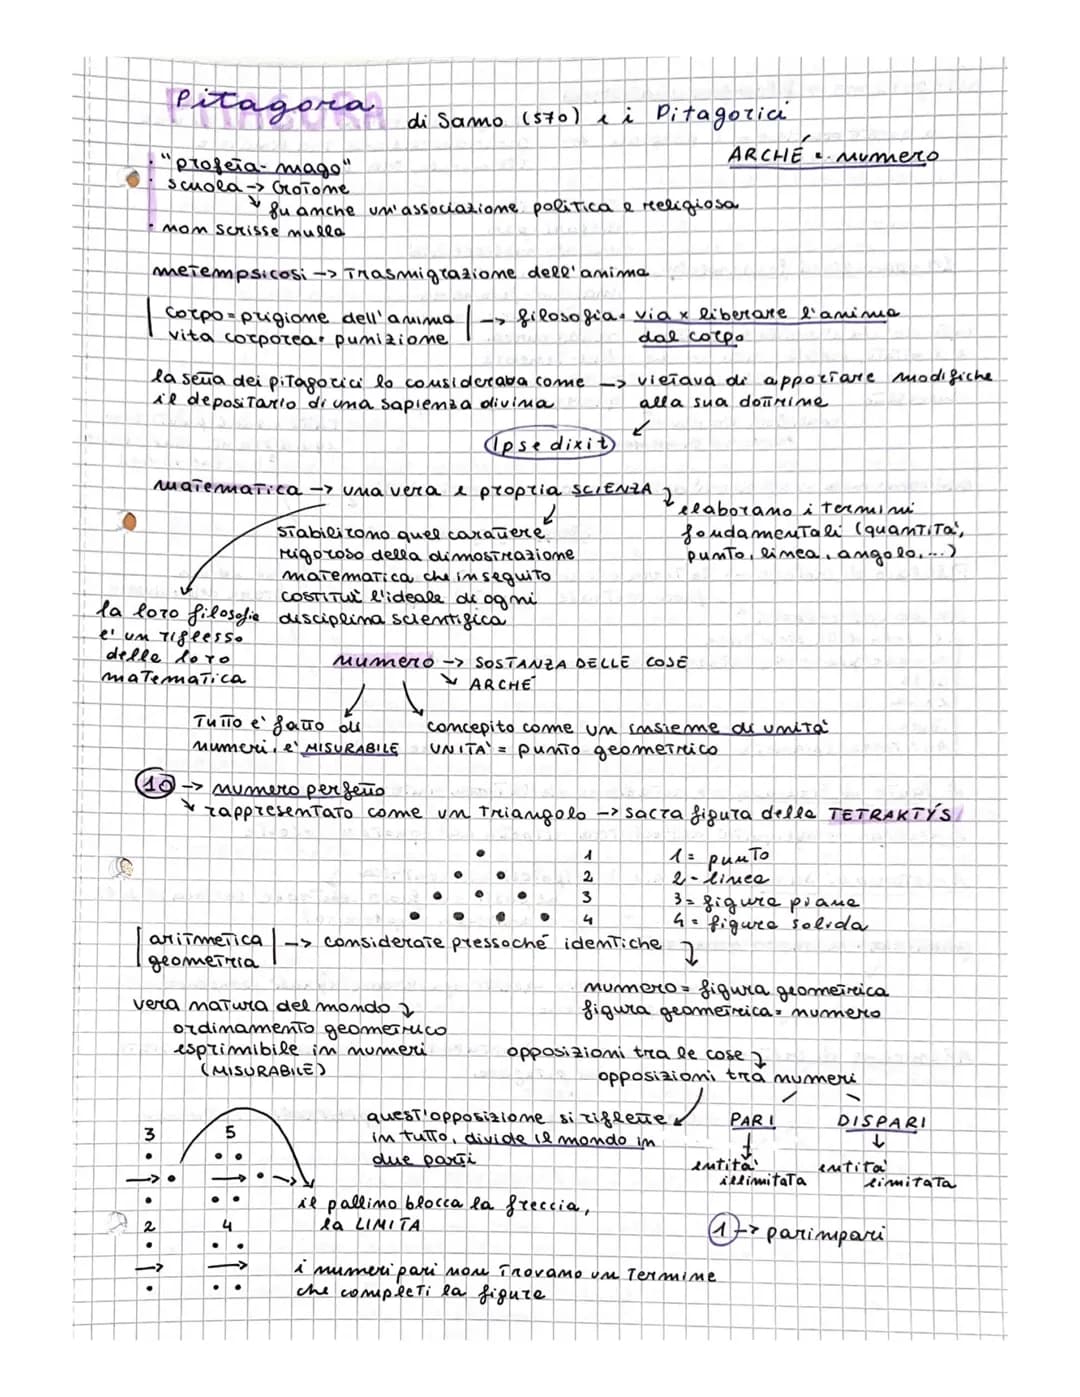 Pitagora di Samo (570) e i Pitagorici
PITAGORA
ARCHÉ = numero
· "profeta-mago"
· scuola -> Crotone
fu anche un'associazione politica e religiosa
· non scrisse nulla
metempsicosi -> Trasmigrazione dell'anima
corpo = prigione dell'anima -> filosofia = via x liberare l'anima
vita corporea = punizione dal corpo
la setta dei pitagorici lo considerava come -> vietava di apportare modifiche
il depositario di una sapienza divina alla sua dottrina
Ipse dixit
matematica -> una vera e propria SCIENZA
elaborano i termini
fondamentali (quantità,
punto, linea, angolo, ...)
stabilirono quel carattere
rigoroso della dimostrazione
matematica che in seguito
costituì l'ideale di ogni
disciplina scientifica
la loro filosofia
e' un riflesso
della loro
matematica
numero -> SOSTANZA DELLE COSE
ARCHÉ
Tutto e' fatto di
numeri, e' MISURABILE
concepito come un insieme di unità
UNITÀ = punto geometrico
10 -> numero perfetto
rappresentato come un triangolo -> sacra figura della TETRAKTÝS
1
2
3
4
1 = punto
2 - linea
3 = figura piana
4 = figura solida
aritmetica -> considerate pressoché identiche
geometria
numero = figura geometrica
figura geometrica = numero
vera natura del mondo
ordinamento geometrico
esprimibile in numeri
(MISURABILE)
opposizioni tra le cose
opposizioni tra numeri
PARI DISPARI
entità illimitata
entità limitata
quest'opposizione si riflette
in tutto, divide il mondo in
due parti
3 5
il pallino blocca la freccia,
la LIMITA
2 4
1 -> parimpari
i numeri pari non trovano un termine
che completi la figura